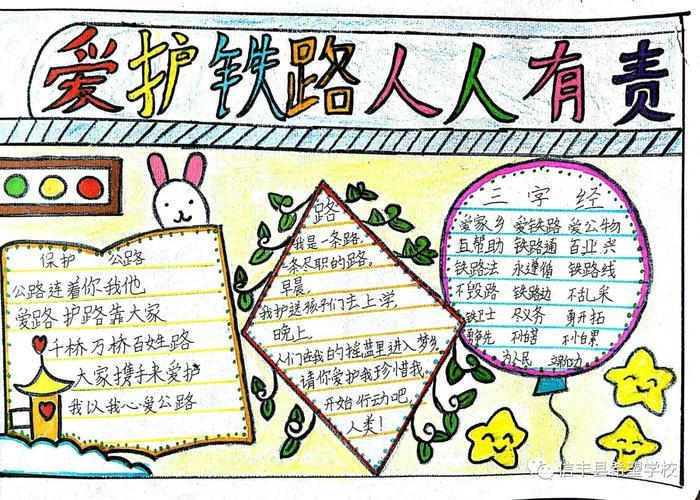 爱护铁路人人有责
保护 公路
公路连着你我他
爱路护路靠大家
千桥万桥百姓路
大家携手来爱护
我以我心爱公路
路
我是一条路。
一条尽职的路。
早晨
我护送孩子们去上学,
晚上
人们在我的摇蓝里进入梦乡
请你爱护我珍惜我
开始行动吧,
人类!
三字经
爱家乡 爱铁路 爱公物
互帮助 铁路通 百业兴
铁路法 永遵循 铁路线
不毁路 铁路边 不乱采
铁卫士 尽义务 勇开拓
争先
为人民
信丰县希望学校